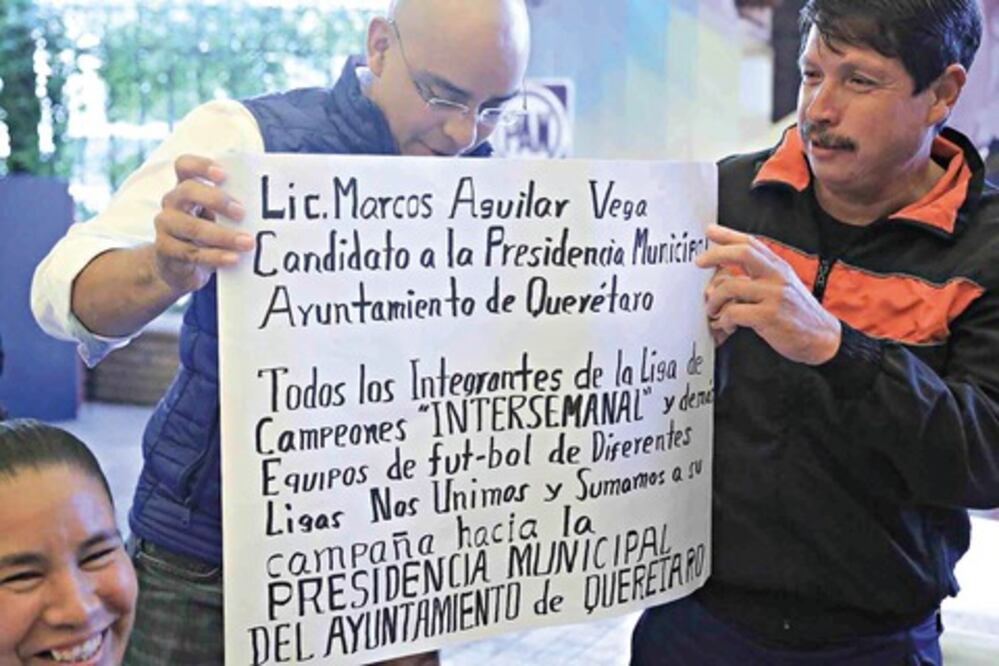 PAN
Lic. Marcos Aguilar Vega
Candidato a la Presidencia Municipal
Ayuntamiento de Querétaro
Todos los Integrantes de la Liga de
Campeones "INTERSEMANAL" y demás
Equipos de fut-bol de Diferentes
Ligas Nos Unimos y Sumamos a su
campaña hacia la
PRESIDENCIA MUNICIPAL
DEL AYUNTAMIENTO de QUERETARO